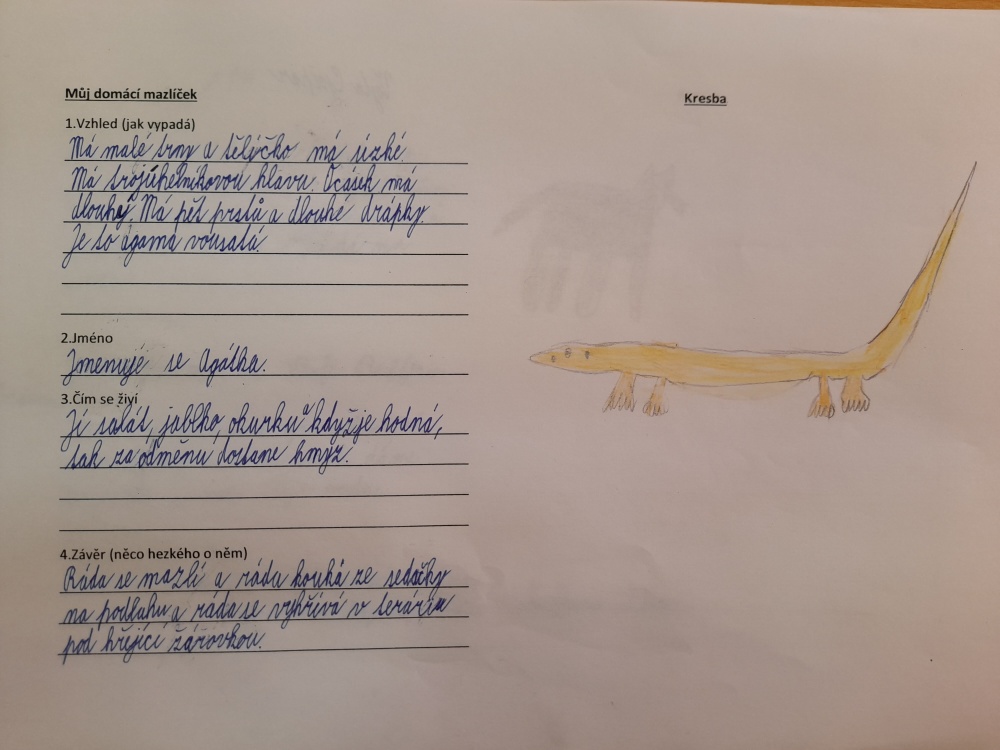 Můj domácí mazlíček
Kresba
1.Vzhled (jak vypadá)
Má malé trny a tělýčko má úzké.
Má trojúhelníkovou hlavu. Ocásek má
dlouhej. Má pět prstů a dlouhé drápky.
Je to agama vousatá.
2.Jméno
Jmenuje se Agátka.
3.Čím se živí
Jí salát, jablko, okurku a když je hodná,
tak za odměnu dostane hmyz.
4.Závěr (něco hezkého o něm)
Ráda se mazlí a ráda kouká ze sedačky
na podlahu a ráda se vyhřívá v teráriu
pod hřející žárovkou.